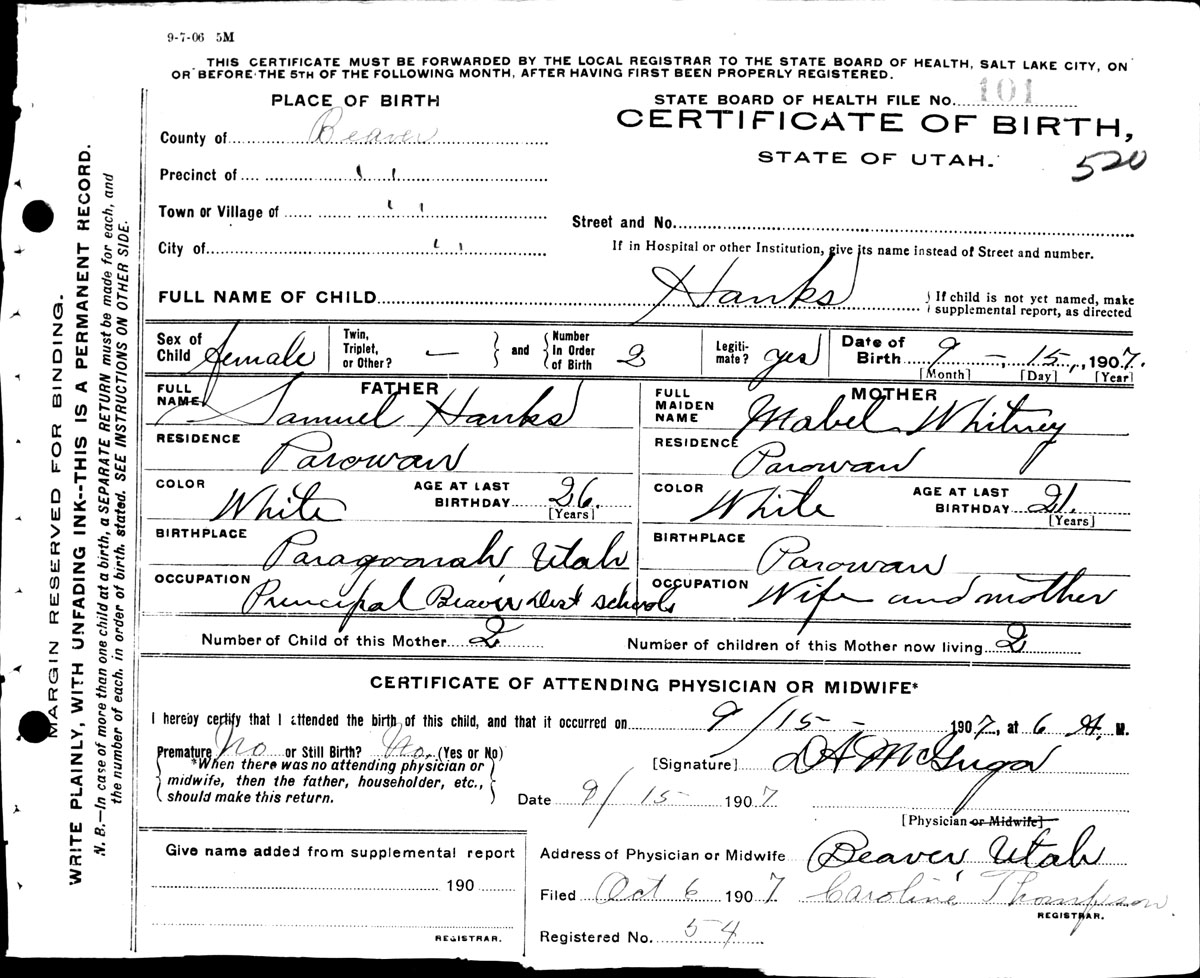 9-7-06 5M
THIS CERTIFICATE MUST BE FORWARDED BY THE LOCAL REGISTRAR TO THE STATE BOARD OF HEALTH, SALT LAKE CITY, ON
OR BEFORE THE 5TH OF THE FOLLOWING MONTH, AFTER HAVING FIRST BEEN PROPERLY REGISTERED.
MARGIN RESERVED FOR BINDING.
WRITE PLAINLY, WITH UNFADING INK--THIS IS A PERMANENT RECORD.
N. B.—In case of more than one child at a birth, a SEPARATE RETURN must be made for each, and
the number of each, in order of birth, stated. SEE INSTRUCTIONS ON OTHER SIDE.
PLACE OF BIRTH
County of Beaver
Precinct of " "
Town or Village of " "
City of " "
STATE BOARD OF HEALTH FILE NO. 101
CERTIFICATE OF BIRTH,
STATE OF UTAH.
520
Street and No.
If in Hospital or other Institution, give its name instead of Street and number.
FULL NAME OF CHILD Hanks
If child is not yet named, make
supplemental report, as directed
Sex of Child female Twin, Triplet, or Other? — and Number In Order of Birth 2 Legitimate? yes Date of Birth 9 - 15 -, 1907.
[Month] [Day] [Year]
FATHER
FULL NAME Samuel Hanks
RESIDENCE Parowan
COLOR White AGE AT LAST BIRTHDAY 26.
[Years]
BIRTHPLACE Paragoonah, Utah
OCCUPATION Principal Beaver Dist schools
MOTHER
FULL MAIDEN NAME Mabel Whitney
RESIDENCE Parowan
COLOR White AGE AT LAST BIRTHDAY 21.
[Years]
BIRTHPLACE Parowan
OCCUPATION Wife and mother
Number of Child of this Mother 2 Number of children of this Mother now living 2
CERTIFICATE OF ATTENDING PHYSICIAN OR MIDWIFE*
I hereby certify that I attended the birth of this child, and that it occurred on 9/15 - 1907, at 6 A. M.
Premature No or Still Birth? No. (Yes or No)
*When there was no attending physician or
midwife, then the father, householder, etc.,
should make this return.
[Signature] DA McGregor
Date 9/15 1907
[Physician or Midwife]
Give name added from supplemental report
190
REGISTRAR.
Address of Physician or Midwife Beaver, Utah
Filed Oct 6 1907 Caroline Thompson
REGISTRAR.
Registered No. 54